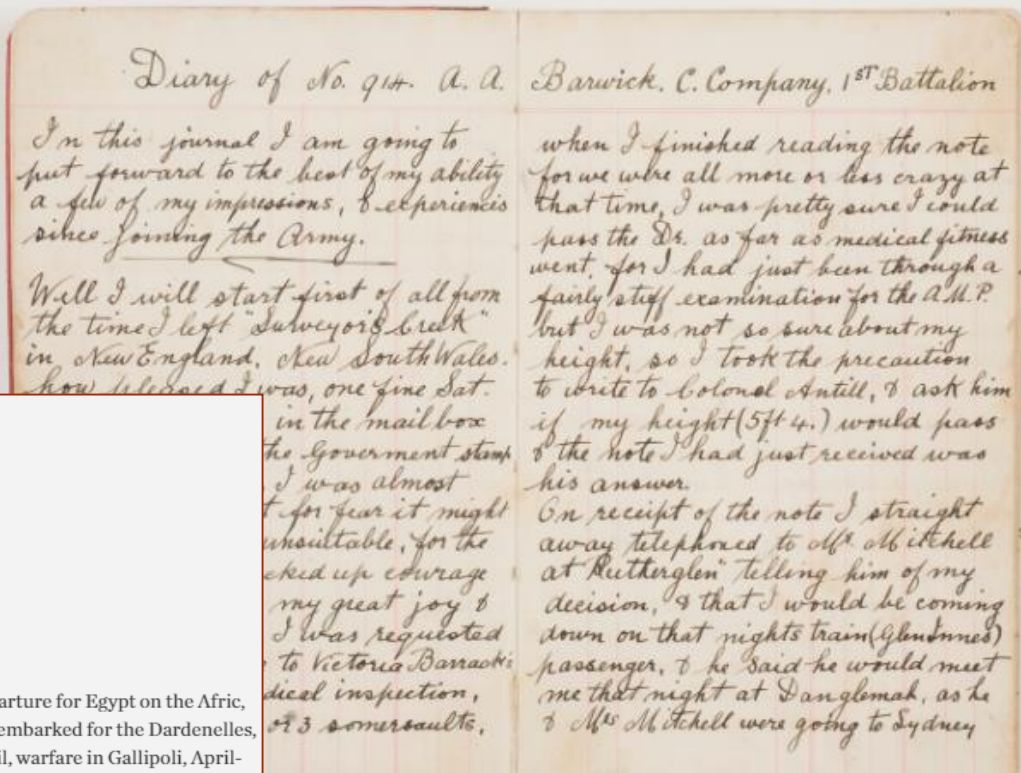 Diary of No. 914. A. A. Barwick. C. Company, 1ST Battalion
In this journal I am going to
put forward to the best of my ability
a few of my impressions, & experiences
since joining the Army.
Well I will start first of all from
the time I left "Surveyor's Creek"
in New England, New South Wales.
how pleased I was, one fine Sat.
in the mail box
the Goverment stamp
I was almost
for fear it might
unsuitable, for the
cked up courage
my great joy &
I was requested
to Victoria Barracks
dical inspection,
or 3 somersaults,
when I finished reading the note
for we were all more or less crazy at
that time, I was pretty sure I could
pass the Dr. as far as medical fitness
went, for I had just been through a
fairly stiff examination for the A.M.P.
but I was not so sure about my
height, so I took the precaution
to write to Colonel Antill, & ask him
if my height (5ft 4.) would pass
& the note I had just received was
his answer.
On receipt of the note I straight
away telephoned to Mr Mitchell
at "Rutherglen" telling him of my
decision, & that I would be coming
down on that nights train (Glen Innes)
passenger, & he said he would meet
me that night at Danglemah, as he
& Mrs Mitchell were going to Sydney
arture for Egypt on the Afric,
embarked for the Dardenelles,
il, warfare in Gallipoli, April-